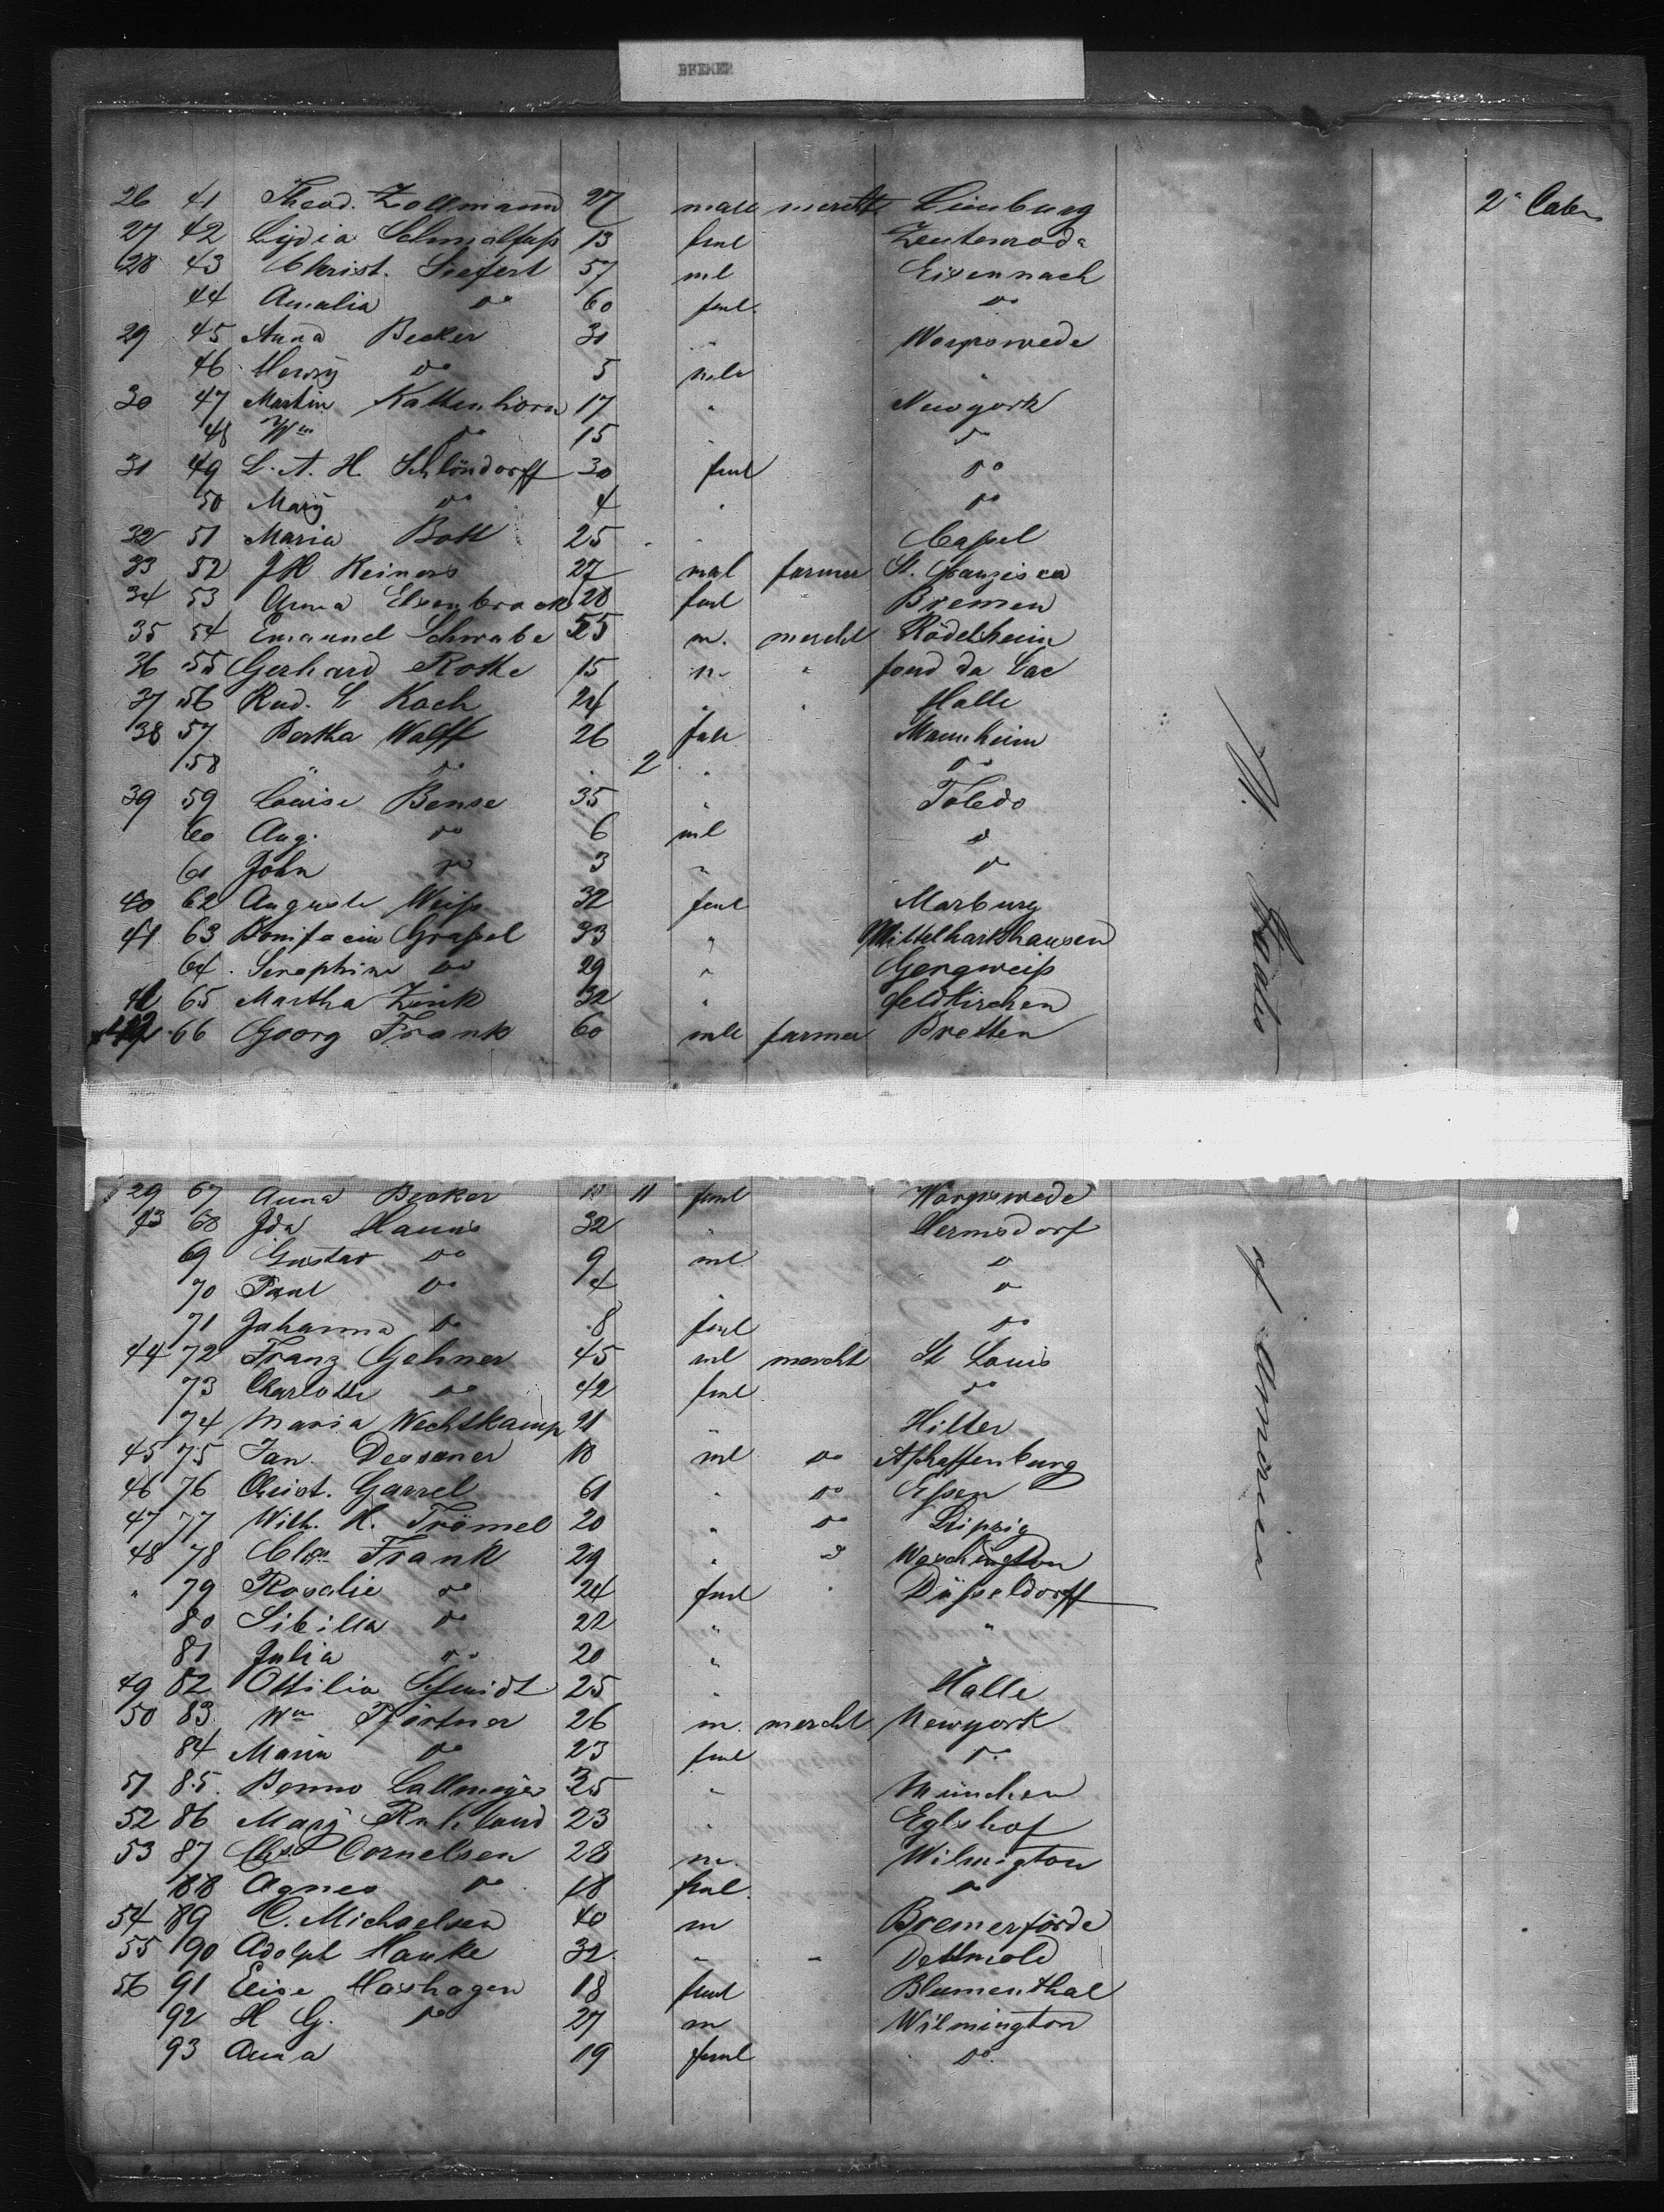 BREMEN
26 41 Theod. Zollmann 27 male mercht Limburg 2d Cabin
27 42 Lydia Schmalfuß 13 fml Zeulenroda
28 43 Christ. Siefert 57 ml Eisennach
44 Amalia do 60 fml do
29 45 Anna Becker 30 " Worpswede
46 Henry do 5 mle "
30 47 Martin Kattenhorn 17 " Newyork
48 Wm do 15 " do
31 49 L. A. H. Schlöndorff 30 fml do
50 Mary do 4 " do
32 51 Maria Bott 25 " Caßel
33 52 J H Reiners 27 mal farmer St. Franzisca
34 53 Anna Elsenbrock 28 fml Bremen
35 54 Emanuel Schwabe 55 m. mercht Rödelheim
36 55 Gerhard Rothe 15 m " fond da Lac
37 56 Rud. L Koch 24 " " Halle
38 57 Bertha Wolff 26 fml Mannheim
58 " do 2 " do
39 59 Louise Bense 35 " Toledo
60 Aug. do 6 ml do
61 John do 3 " do
40 62 Auguste Weiß 32 fml Marburg
41 63 Bonifacia Graßel 33 " Mittelhartshausen
64 Seraphine do 29 " Gergweiß
65 Martha Zink 32 " feldkirchen
42 66 Georg Frank 60 mle farmer Bretten
U. States
29 67 Anna Becker 11 fml Worpswede
43 68 Ida Hanns 32 " Hermsdorf
69 Gustav do 9 ml do
70 Paul do 4 " do
71 Johanna do 8 fml do
44 72 Franz Gehner 45 ml mercht St Louis
73 Charlotte do 42 fml do
74 Maria Wechtkamp 21 Hilter
45 75 Jan. Dessauer 18 ml do Aschaffenburg
46 76 Christ. Garrel 61 " do Eßen
47 77 Wilh. H. Trömel 20 " do Leipzig
48 78 Chs Frank 29 " do Waschington
" 79 Rosalie do 24 fml " Düßeldorff
80 Sibilla do 22 " "
81 Julia do 20 " "
49 82 Ottilia Schmidt 25 " Halle
50 83 Wm Pförtner 26 m. mercht Newyork
84 Maria do 23 fml do
51 85 Benno Lallmeyer 35 " München
52 86 Mary Ruhland 23 " Eglshof
53 87 Chs Cornelsen 28 m. Wilmigton
88 Agnes do 18 fml do
54 89 C. Michaelsen 40 m Bremerförde
55 90 Adolph Hanke 32 " " Dettmold
56 91 Elise Hashagen 18 fml Blumenthal
92 H G. do 27 m Wilmington
93 Anna 19 fml do
of America